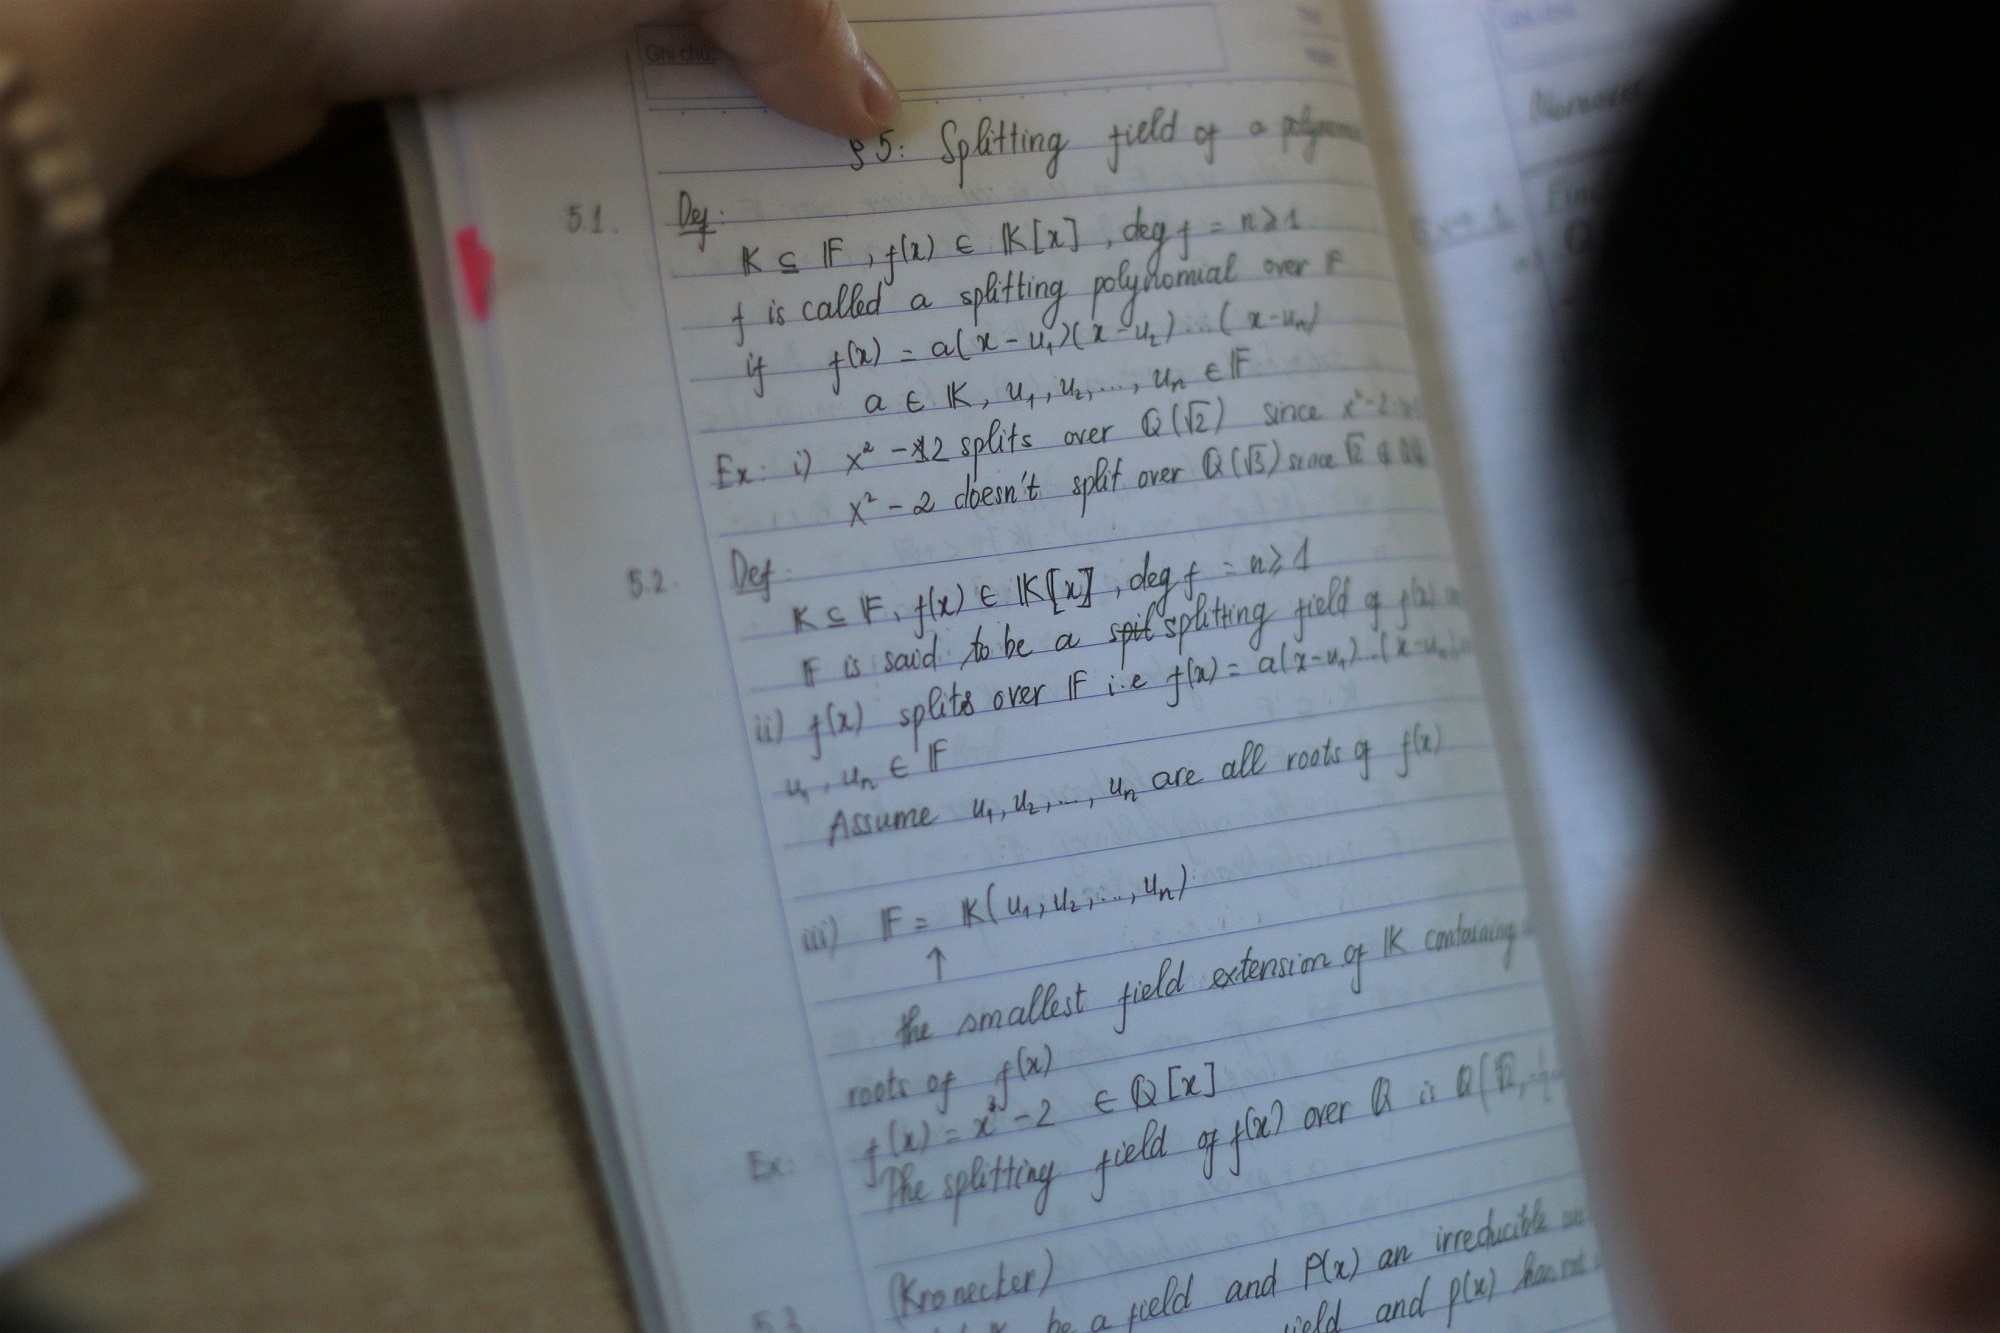 Ghi chú:
§5: Splitting field of a
5.1. Def:
K ⊆ F, f(x) ∈ K[x], deg f = n ≥ 1
f is called a splitting polynomial over F
if f(x) = a(x - u₁)(x - u₂)...(x - uₙ)
a ∈ K, u₁, u₂, ..., uₙ ∈ F
Ex: i) x² - 2 splits over Q(√2) since x² - 2
x² - 2 doesn't split over Q(√3) since √2 ∉
5.2. Def:
K ⊆ F, f(x) ∈ K[x], deg f = n ≥ 1
F is said to be a splitting field of f(x)
ii) f(x) splits over F i.e f(x) = a(x-u₁)...(x-uₙ)
u₁, uₙ ∈ F
Assume u₁, u₂, ..., uₙ are all roots of f(x)
iii) F = K(u₁, u₂, ..., uₙ)
↑
the smallest field extension of K containing
roots of f(x)
Ex: f(x) = x³ - 2 ∈ Q[x]
The splitting field of f(x) over Q is Q(
5.3 (Kronecker)
be a field and P(x) an irreducible
field and p(x) has